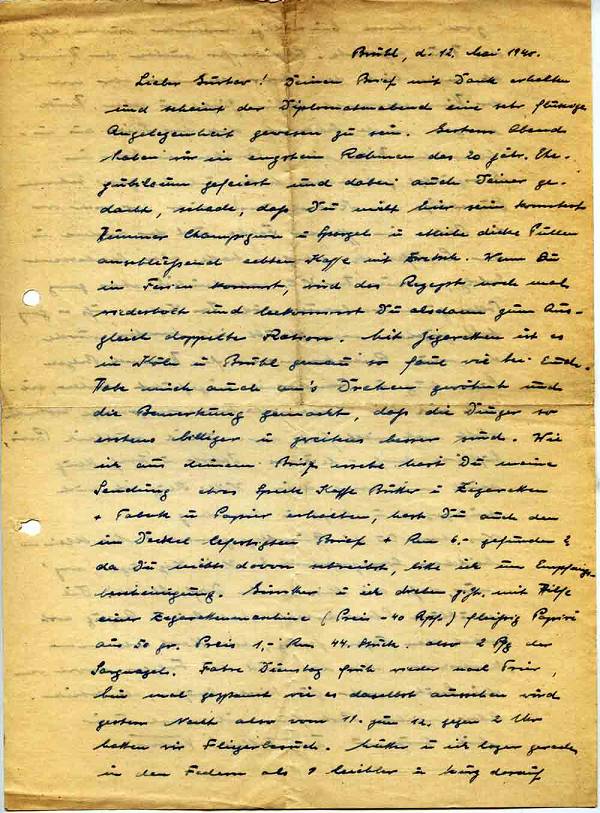 Brühl, d. 12. Mai 1940.
Lieber Günter! Deinen Brief mit Dank erhalten
und scheint der Diplomatenabend eine sehr flüssige
Angelegenheit gewesen zu sein. Gestern Abend
haben wir in engstem Rahmen das 20 jähr. Ehe-
jubiläum gefeiert und dabei auch Deiner ge-
dacht, schade, daß Du nicht hier sein konntest
Hummer Champignon u Spargel u etliche dicke Pullen
anschließend echten Kaffe mit Zwetsch. Wenn Du
in Ferien kommst, wird das Rezept noch mal
wiederholt und bekommst Du alsdann zum Aus-
gleich doppelte Ration. Mit Zigaretten ist es
in Köln u Brühl genau so faul wie bei Euch.
Habe mich auch an's Drehen gewöhnt und
die Bemerkung gemacht, daß die Dinger so
erstens billiger u zweitens besser sind. Wie
ich aus deinem Brief ersehe hast Du meine
Sendung etws Speck Kaffe Butter u Zigaretten
+ Tabak u Papier erhalten, hast Du auch den
im Deckel befestigten Brief + Rm 6.- gefunden?
da Du nichts davon schreibst, bitte ich um Empfangs-
bescheinigung. u ich drehen z.Zt. mit Hilfe
einer Zigarettenmaschine (Preis -40 Rpf.) fleißig Papirü
aus 50 gr. Preis 1,- Rm 44 Stück. also 2 Pfg der
Sargnagel. Fahre Dienstag früh wieder nach Trier,
bin mal gespannt wie es daselbst aussehen wird
gestern Nacht also vom 11. zum 12. gegen 2 Uhr
hatten wir Fliegerbesuch. Mutter u ich lagen gerade
in den Federn als 1 leichter u kurz darauf